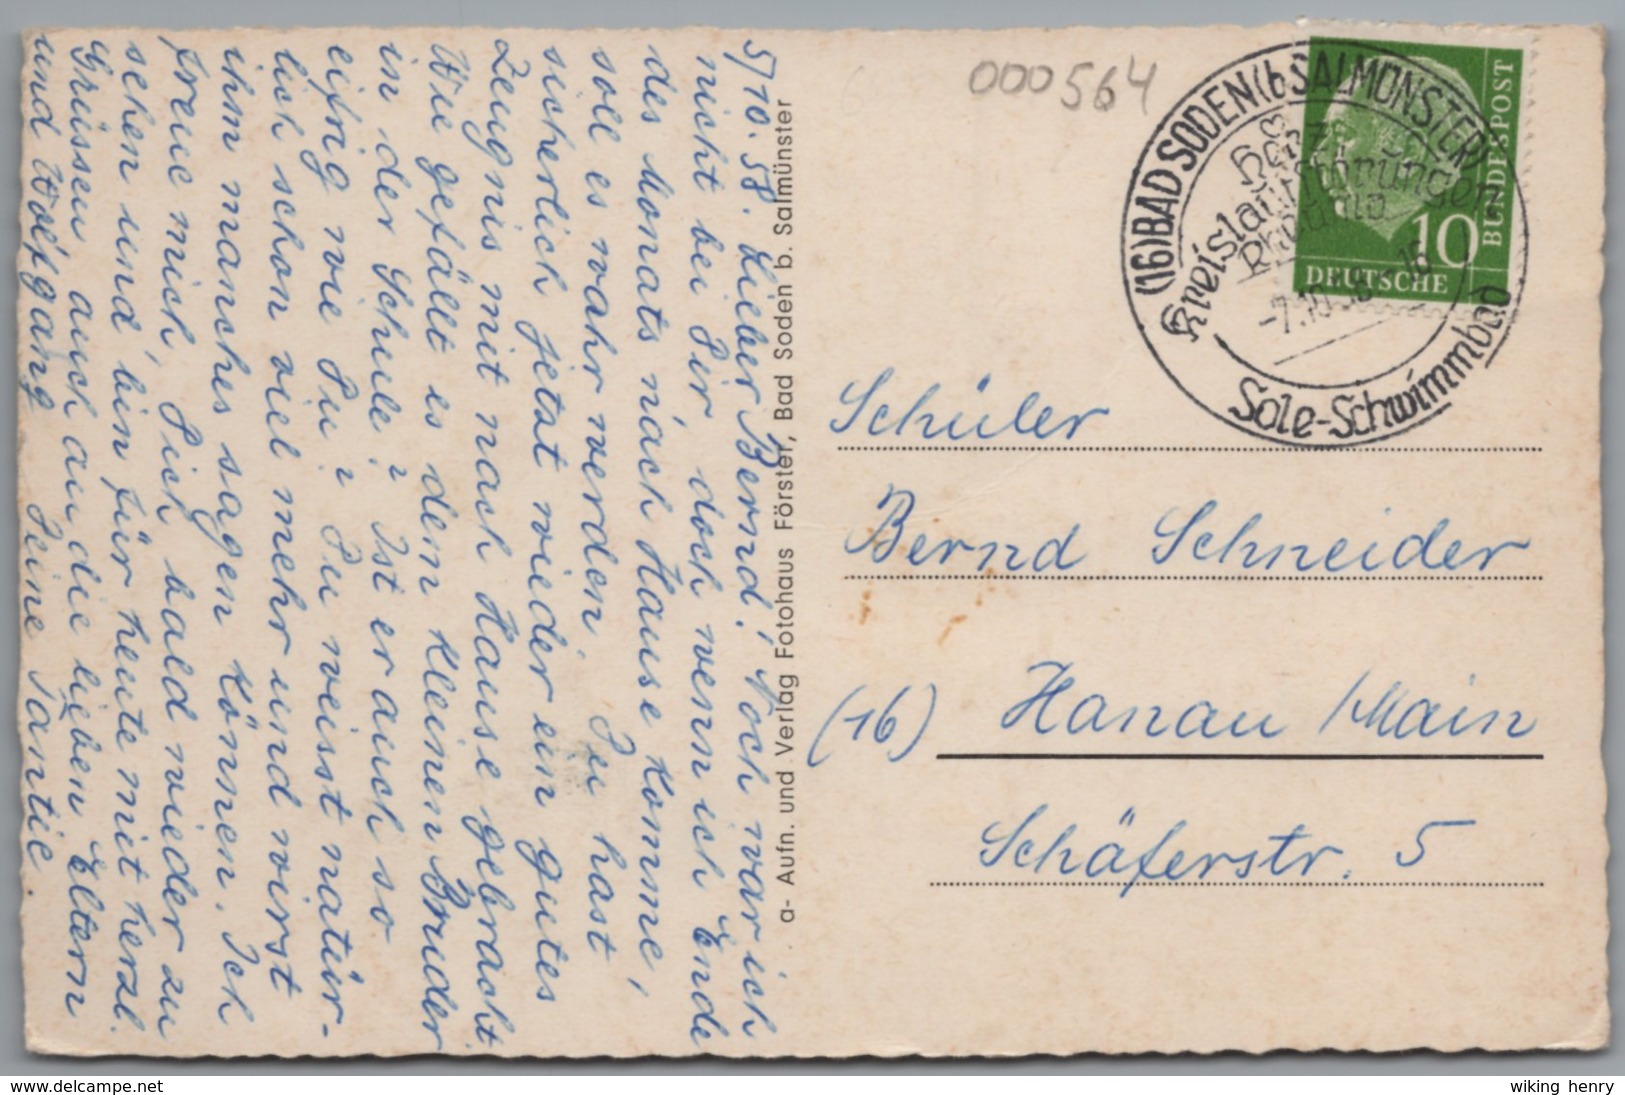 5/10.58. Lieber Bernd! Noch war ich
nicht bei Dir, doch wenn ich Ende
des Monats nach Hause komme,
soll es wahr werden. Du hast
sicherlich jetzt wieder ein gutes
Zeugnis mit nach Hause gebracht.
Wie gefällt es dem kleinen Bruder
in der Schule? Ist er auch so
eifrig wie Du? Du weisst natür-
lich schon viel mehr und wirst
ihm manches sagen können. Ich
freue mich, Dich bald wieder zu
sehen und bin für heute mit herzl.
Grüssen auch an die lieben Eltern
und Wolfgang Deine Tantie.
a- Aufn. und Verlag Fotohaus Förster, Bad Soden b. Salmünster
000564
(16) BAD SODEN (b SALMÜNSTER)
-7.10.58
Sole-Schwimmbad
10
DEUTSCHE
BUNDESPOST
Schüler
Bernd Schneider
(16) Hanau/Main
Schäferstr. 5
www.delcampe.net
wiking henry